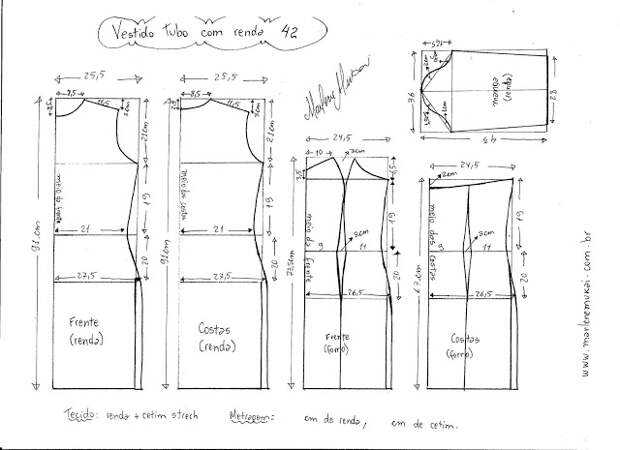 Vestido tubo com renda 42
25,5
7,5
11,5
2cm
21cm
meio da frente
19
21
20
27,5
91cm
Frente
(renda)
25,5
7,5
11,5
2cm
21cm
meio das costas
19
21
20
27,5
91cm
Costas
(renda)
Marlene Mukai
24,5
10
3cm
6,5
3,5
meio da frente
19
9
3cm
11
20
26,5
Frente
(forro)
24,5
2cm
meio das costas
19
9
3cm
11
20
26,5
67cm
Costas
(forro)
36
manga
(renda)
28
www.marlenemukai.com.br
Tecido: renda + cetim strech
Metragem: cm de renda, cm de cetim.